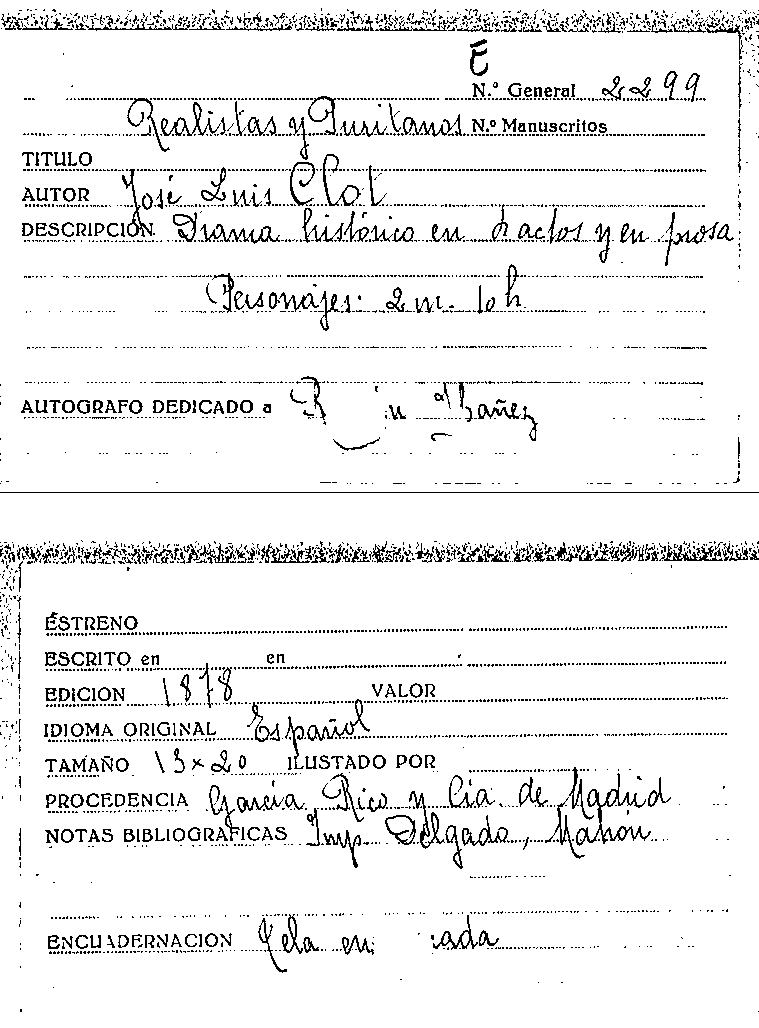 E
N.º General 2299
Realistas y Puritanos N.º Manuscritos
TITULO
AUTOR José Luis Clot
DESCRIPCIÓN Drama histórico en actos y en prosa
Personajes: 2 m. 10 h
AUTOGRAFO DEDICADO a Ibañez
ESTRENO
ESCRITO en en
EDICION 1878 VALOR
IDIOMA ORIGINAL Español
TAMAÑO 13 x 20 ILUSTADO POR
PROCEDENCIA García Rico y Cia. de Madrid
NOTAS BIBLIOGRAFICAS Imp. Delgado, Mahón
ENCUADERNACION Tela